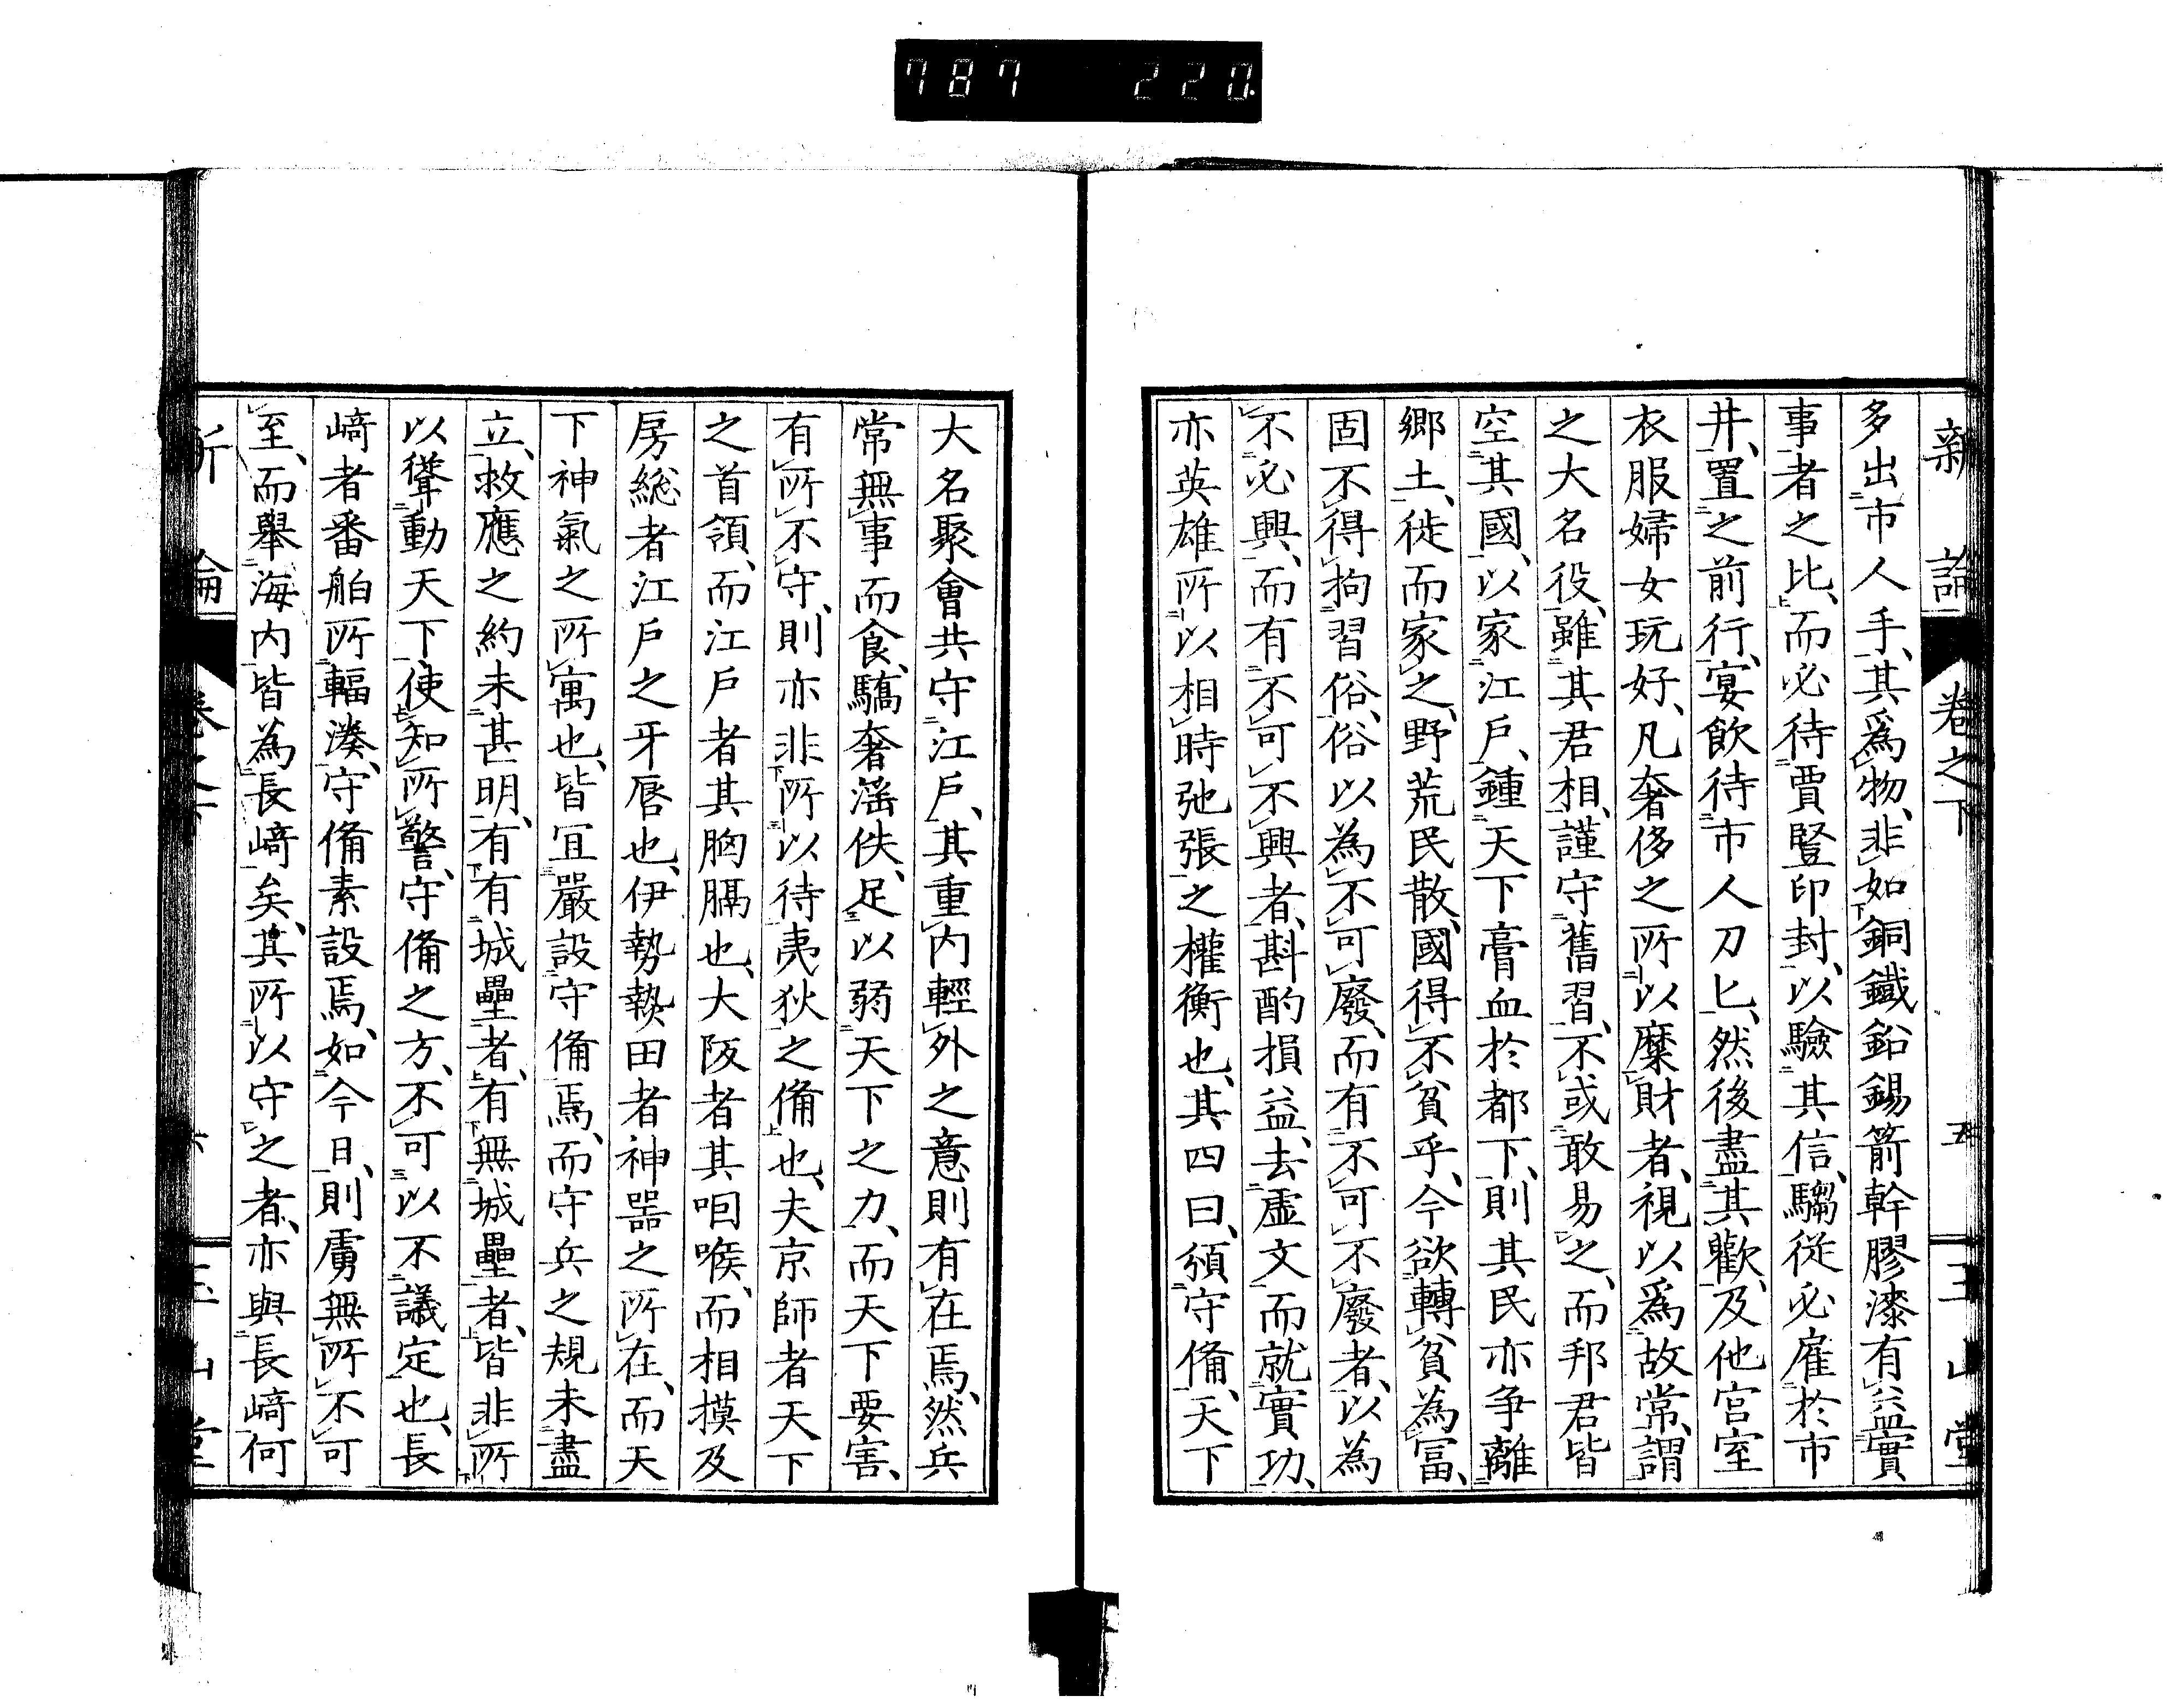 787 220
新論 卷之下 五 玉山堂
多出市人手、其爲物、非如銅鐵鉛錫箭幹膠漆有益實
事者之比、而必待賈豎印封、以驗其信、騶從必雇於市
井、置之前行、宴飲待市人刀匕、然後盡其歡、及他宮室
衣服婦女玩好、凡奢侈之所以糜財者、視以爲故常、謂
之大名役、雖其君相、謹守舊習、不或敢易之、而邦君皆
空其國、以家江戶、鍾天下膏血於都下、則其民亦争離
鄉土、徙而家之、野荒民散、國得不貧乎、今欲轉貧為冨、
固不得拘習俗、俗以為不可廢、而有不可不廢者、以為
不必興、而有不可不興者、斟酌損益、去虛文而就實功、
亦英雄所以相時弛張之權衡也、其四曰、頒守備、天下
大名聚會共守江戶、其重内輕外之意則有在焉、然兵
常無事而食、驕奢滛佚、足以弱天下之力、而天下要害、
有所不守、則亦非所以待夷狄之備也、夫京師者天下
之首領、而江戶者其胸膈也、大阪者其咽喉、而相摸及
房総者江戶之牙唇也、伊勢熱田者神器之所在、而天
下神氣之所寓也、皆宜嚴設守備焉、而守兵之規未盡
立、救應之約未甚明、有有城壘者、有無城壘者、皆非所
以聳動天下使知所警、守備之方、不可以不議定也、長
﨑者番舶所輻湊、守備素設焉、如今日、則虜無所不可
至、而舉海内皆為長﨑矣、其所以守之者、亦與長﨑何